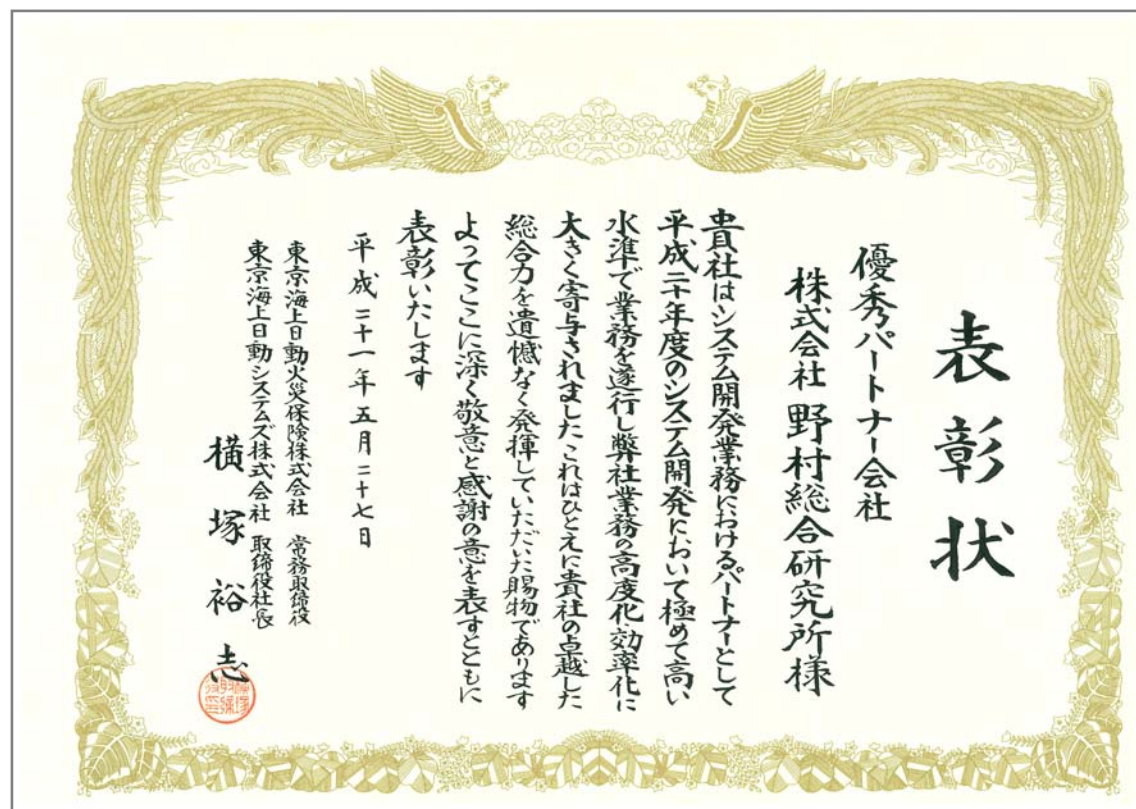 表彰状
優秀パートナー会社
株式会社 野村総合研究所様
貴社はシステム開発業務におけるパートナーとして
平成二十年度のシステム開発において極めて高い
水準で業務を遂行し弊社業務の高度化、効率化に
大きく寄与されましたこれはひとえに貴社の卓越した
総合力を遺憾なく発揮していただいた賜物であります
よってここに深く敬意と感謝の意を表すとともに
表彰いたします
平成二十一年五月二十七日
東京海上日動火災保険株式会社 常務取締役
東京海上日動システムズ株式会社 取締役社長
横塚裕志